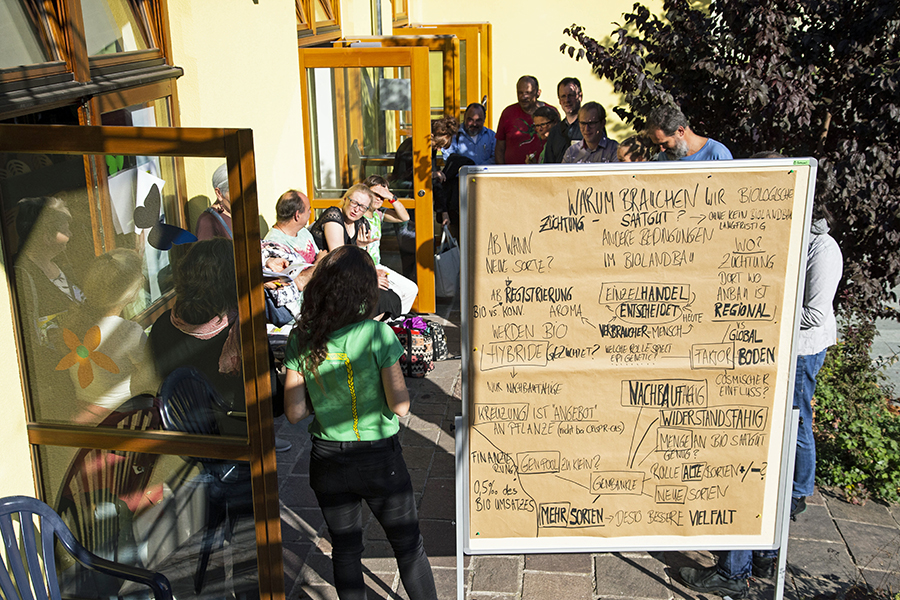 WARUM BRAUCHEN WIR BIOLOGISCHE
ZÜCHTUNG - SAATGUT? → OHNE KEIN BIOLANDBAU
LANGFRISTIG
AB WANN
NEUE SORTE?
ANDERE BEDINGUNGEN
IM BIOLANDBAU
WO?
ZÜCHTUNG
DORT WO
ANBAU IST
REGIONAL
VS
GLOBAL
FAKTOR BODEN
AB REGISTRIERUNG
BIO vs. KONV. AROMA
EINZELHANDEL
ENTSCHEIDET
HEUTE
VERBRAUCHER MENSCH
WERDEN BIO
HYBRIDE GEZÜCHTET?
WELCHE ROLLE SPIELT
EPIGENETIC?
NUR NACHBAUFÄHIGE
NACHBAUFÄHIG
KOSMISCHER
EINFLUSS?
KREUZUNG IST "ANGEBOT"
AN PFLANZE (nicht bei CRISPR-CAS)
WIDERSTANDSFÄHIG
MENGE AN BIO SAATGUT
GENUG?
FINANZIERUNG
0,5% des
BIO UMSATZES
GENPOOL ZU KLEIN?
GENBÄNKE
ROLLE ALTE SORTEN +/-?
NEUE SORTEN
MEHR SORTEN → DESTO BESSERE VIELFALT